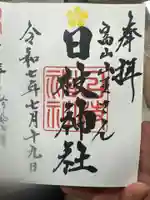 奉拝
富山山王さん
日枝神社
令和七年七月十九日